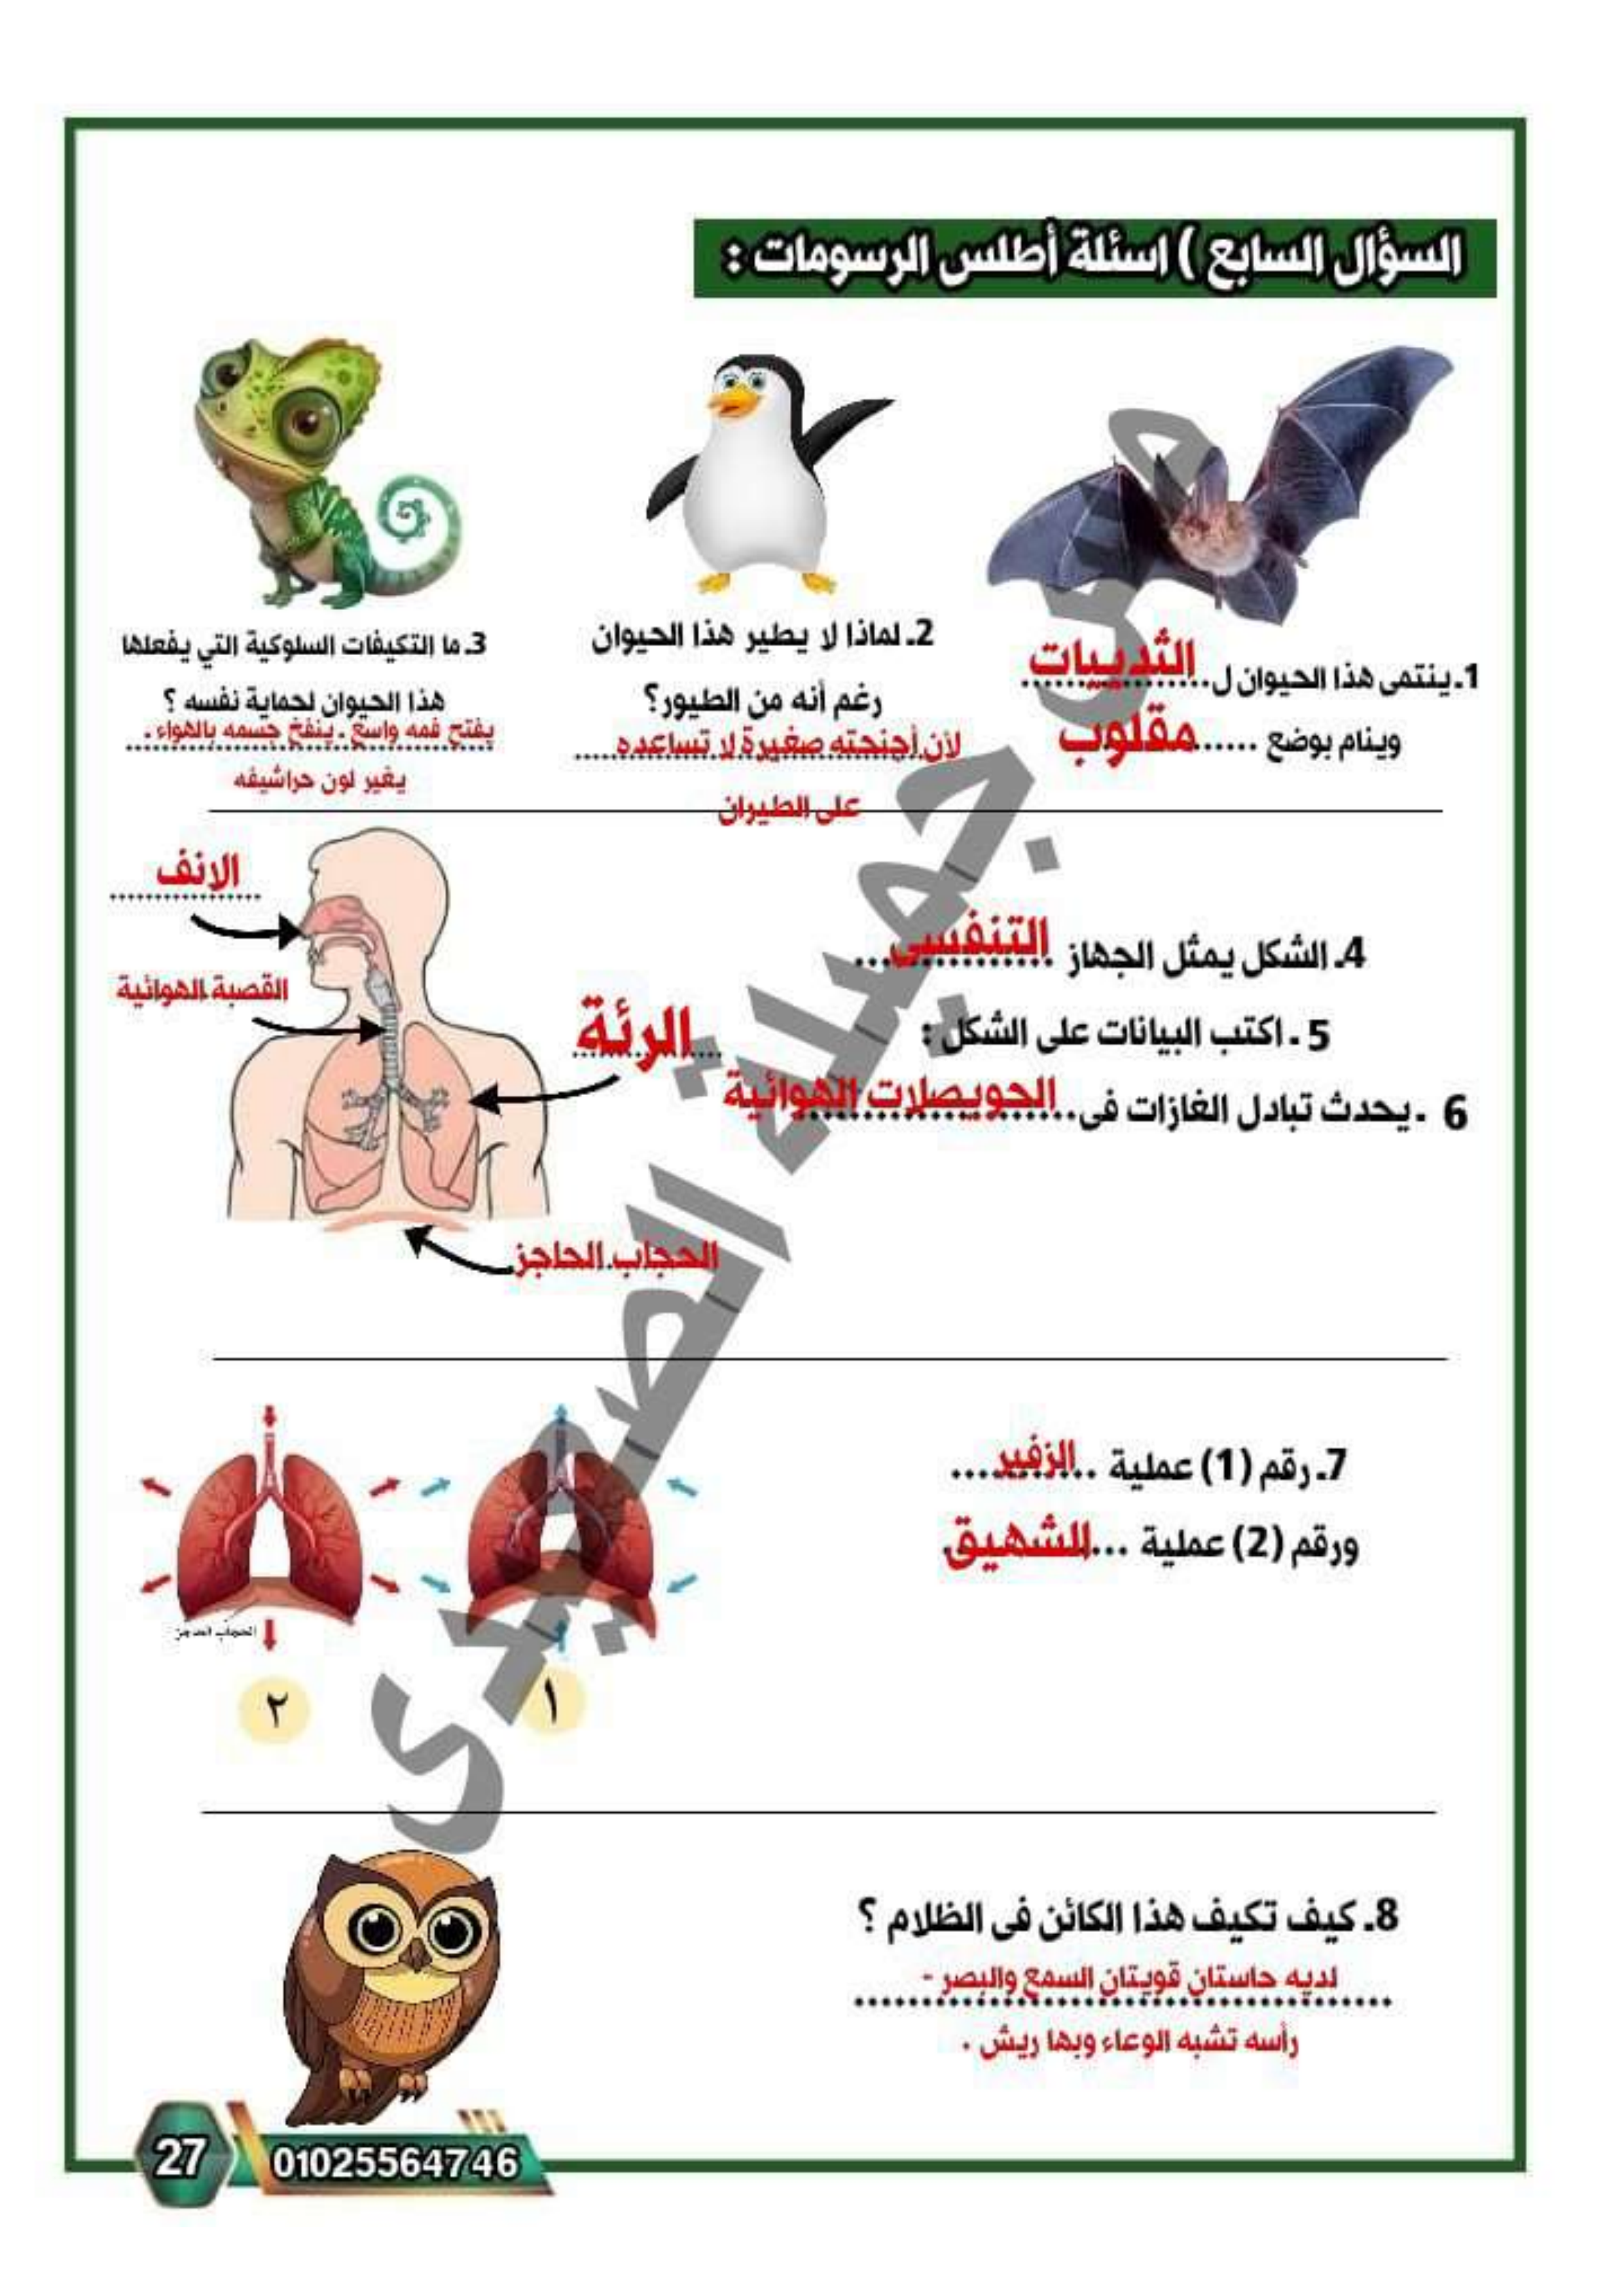 السؤال السابع ) اسئلة أطلس الرسومات :
1ـ ينتمى هذا الحيوان ل الثدييات
وينام بوضع ...... مقلوب
2ـ لماذا لا يطير هذا الحيوان
رغم أنه من الطيور؟
لأن أجنحته صغيرة لا تساعده
على الطيران
3ـ ما التكيفات السلوكية التي يفعلها
هذا الحيوان لحماية نفسه ؟
يفتح فمه واسع ـ ينفخ جسمه بالهواء ـ
يغير لون حراشيفه
4ـ الشكل يمثل الجهاز التنفسى
5 ـ اكتب البيانات على الشكل :
6 ـ يحدث تبادل الغازات فى الحويصلات الهوائية
الانف
القصبة الهوائية
الرئة
الحجاب الحاجز
7ـ رقم (1) عملية الزفير
ورقم (2) عملية ... الشهيق
الحجاب الحاجز
١
٢
8ـ كيف تكيف هذا الكائن فى الظلام ؟
لديه حاستان قويتان السمع والبصر -
رأسه تشبه الوعاء وبها ريش .
27
01025564746
مس جميلة الصعيدى